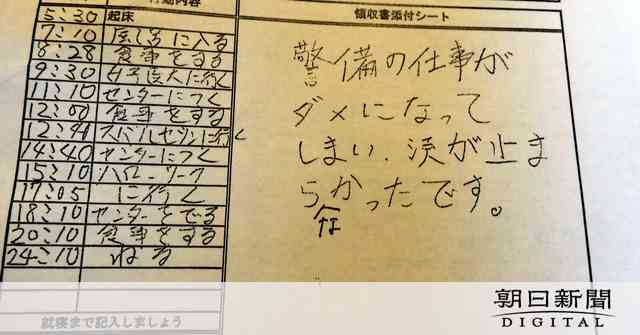 行動内容
領収書添付シート
5:30 起床
7:10 に入る
8:28 食事をする
9:30 女子医大に行く
11:10 センターにつく
12:00 食事をする
12:41 に行く
14:40 センターにつく
15:10 ハローワーク
17:05 に行く
18:10 センターをでる
20:10 食事をする
24:10 ねる
就寝まで記入しましょう
警備の仕事が
ダメになって
しまい、涙が止ま
らかったです。
な
朝日新聞
DIGITAL